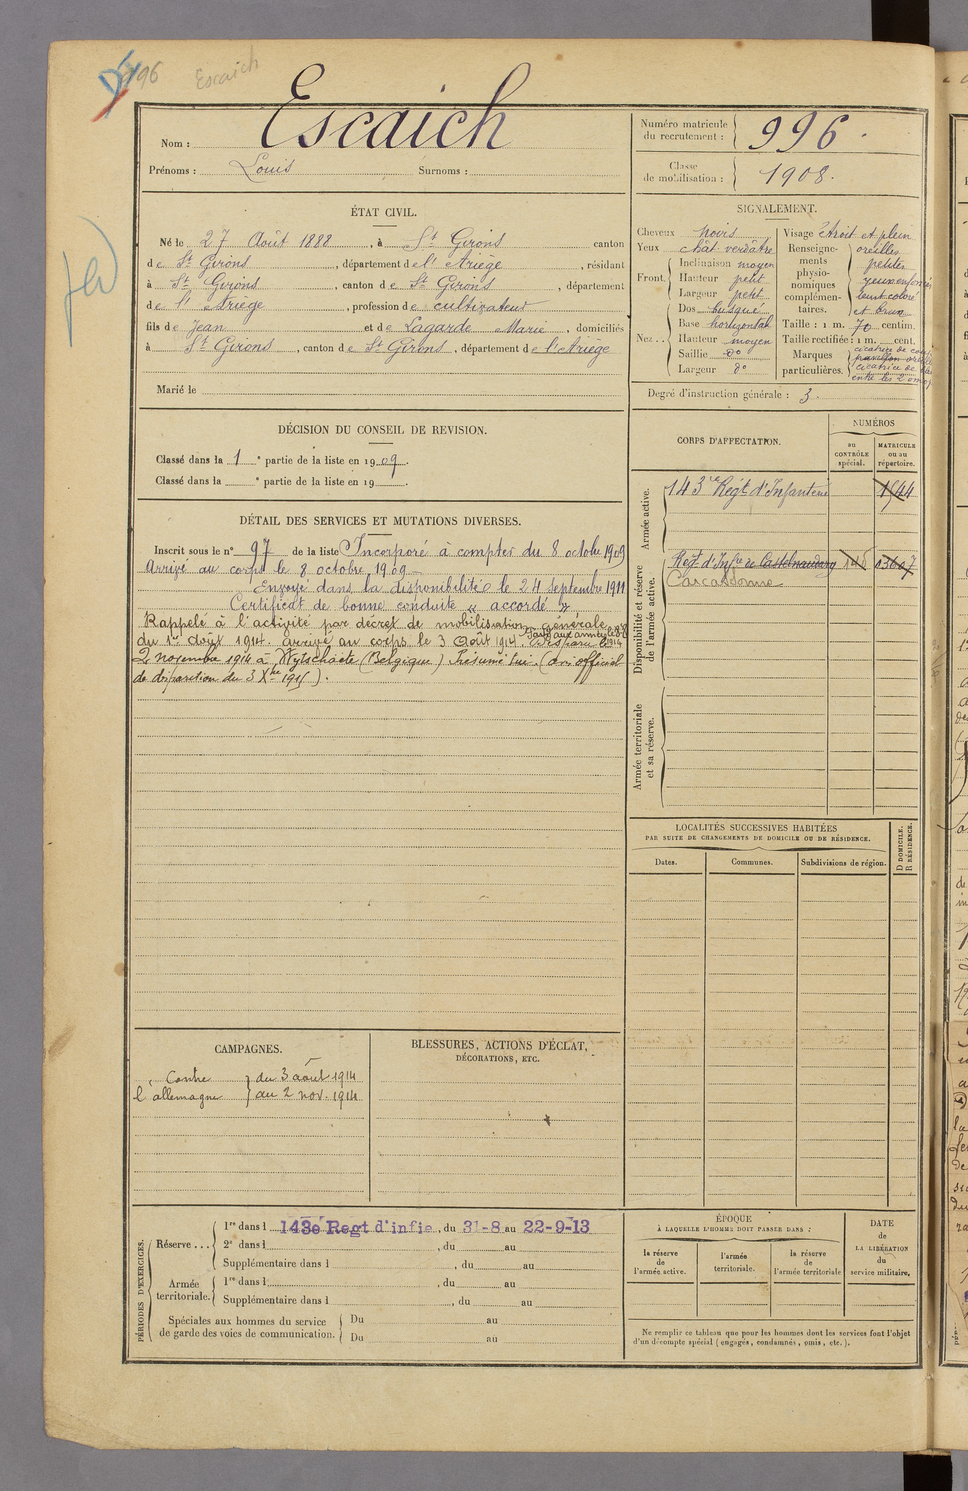 996 Escaich
Nom : Escaich
Prénoms : Louis Surnoms :
Numéro matricule du recrutement : 996.
Classe de mobilisation : 1908.
ÉTAT CIVIL.
Né le 27 Août 1888, à St Girons canton
de St Girons, département de l'Ariège, résidant
à St Girons, canton de St Girons, département
de l'Ariège, profession de cultivateur
fils de Jean et de Lagarde Marie, domiciliés
à St Girons, canton de St Girons, département de l'Ariège
Marié le
SIGNALEMENT.
Cheveux noirs
Yeux chât. verdâtre
Front. Inclinaison moyen
Hauteur petit
Largeur petit
Nez.. Dos busqué
Base horizontal
Hauteur moyen
Saillie do
Largeur do
Visage étroit et plein
Renseignements physionomiques complémentaires. oreilles
petites
yeux enfoncés
teint coloré
et brun
Taille : 1 m. 70 centim.
Taille rectifiée : 1 m. cent.
Marques particulières. cicatrice de
cicatrice de
entre les 2
Degré d'instruction générale : 3.
DÉCISION DU CONSEIL DE REVISION.
Classé dans la 1e partie de la liste en 1909.
Classé dans la e partie de la liste en 19 .
DÉTAIL DES SERVICES ET MUTATIONS DIVERSES.
Inscrit sous le n° 97 de la liste Incorporé à compter du 8 octobre 1909
Arrivé au corps le 8 octobre 1909
Envoyé dans la disponibilité le 24 septembre 1911
Certificat de bonne conduite « accordé »
Rappelé à l'activité par décret de mobilisation générale
du 1er Août 1914. Arrivé au corps le 3 Août 1914. Disparu le
2 novembre 1914 à Wytschaete (Belgique) Présumé tué. (avis officiel
de disparition du 3 Xbre 1915).
CORPS D'AFFECTATION.
NUMÉROS
au CONTRÔLE spécial.
MATRICULE ou au répertoire.
Armée active.
143e Regt d'Infanterie 1544
Disponibilité et réserve de l'armée active.
Regt d'Infie de Castelnaudary 03607
Carcassonne
Armée territoriale et sa réserve.
LOCALITÉS SUCCESSIVES HABITÉES
PAR SUITE DE CHANGEMENTS DE DOMICILE OU DE RÉSIDENCE.
Dates. Communes. Subdivisions de région.
D DOMICILE.
R RÉSIDENCE.
CAMPAGNES.
Contre du 3 août 1914
l'allemagne au 2 nov. 1914
BLESSURES, ACTIONS D'ÉCLAT,
DÉCORATIONS, ETC.
PÉRIODES D'EXERCICES.
Réserve... 1re dans l 143e Regt d'infie, du 31-8 au 22-9-13
2e dans l , du au
Supplémentaire dans l , du au
Armée territoriale. 1re dans l , du au
Supplémentaire dans l , du au
Spéciales aux hommes du service Du au
de garde des voies de communication. Du au
ÉPOQUE
À LAQUELLE L'HOMME DOIT PASSER DANS :
la réserve de l'armée active.
l'armée territoriale.
la réserve de l'armée territoriale
DATE
de
LA LIBÉRATION
du
service militaire.
Ne remplir ce tableau que pour les hommes dont les services font l'objet
d'un décompte spécial (engagés, condamnés, omis, etc.).